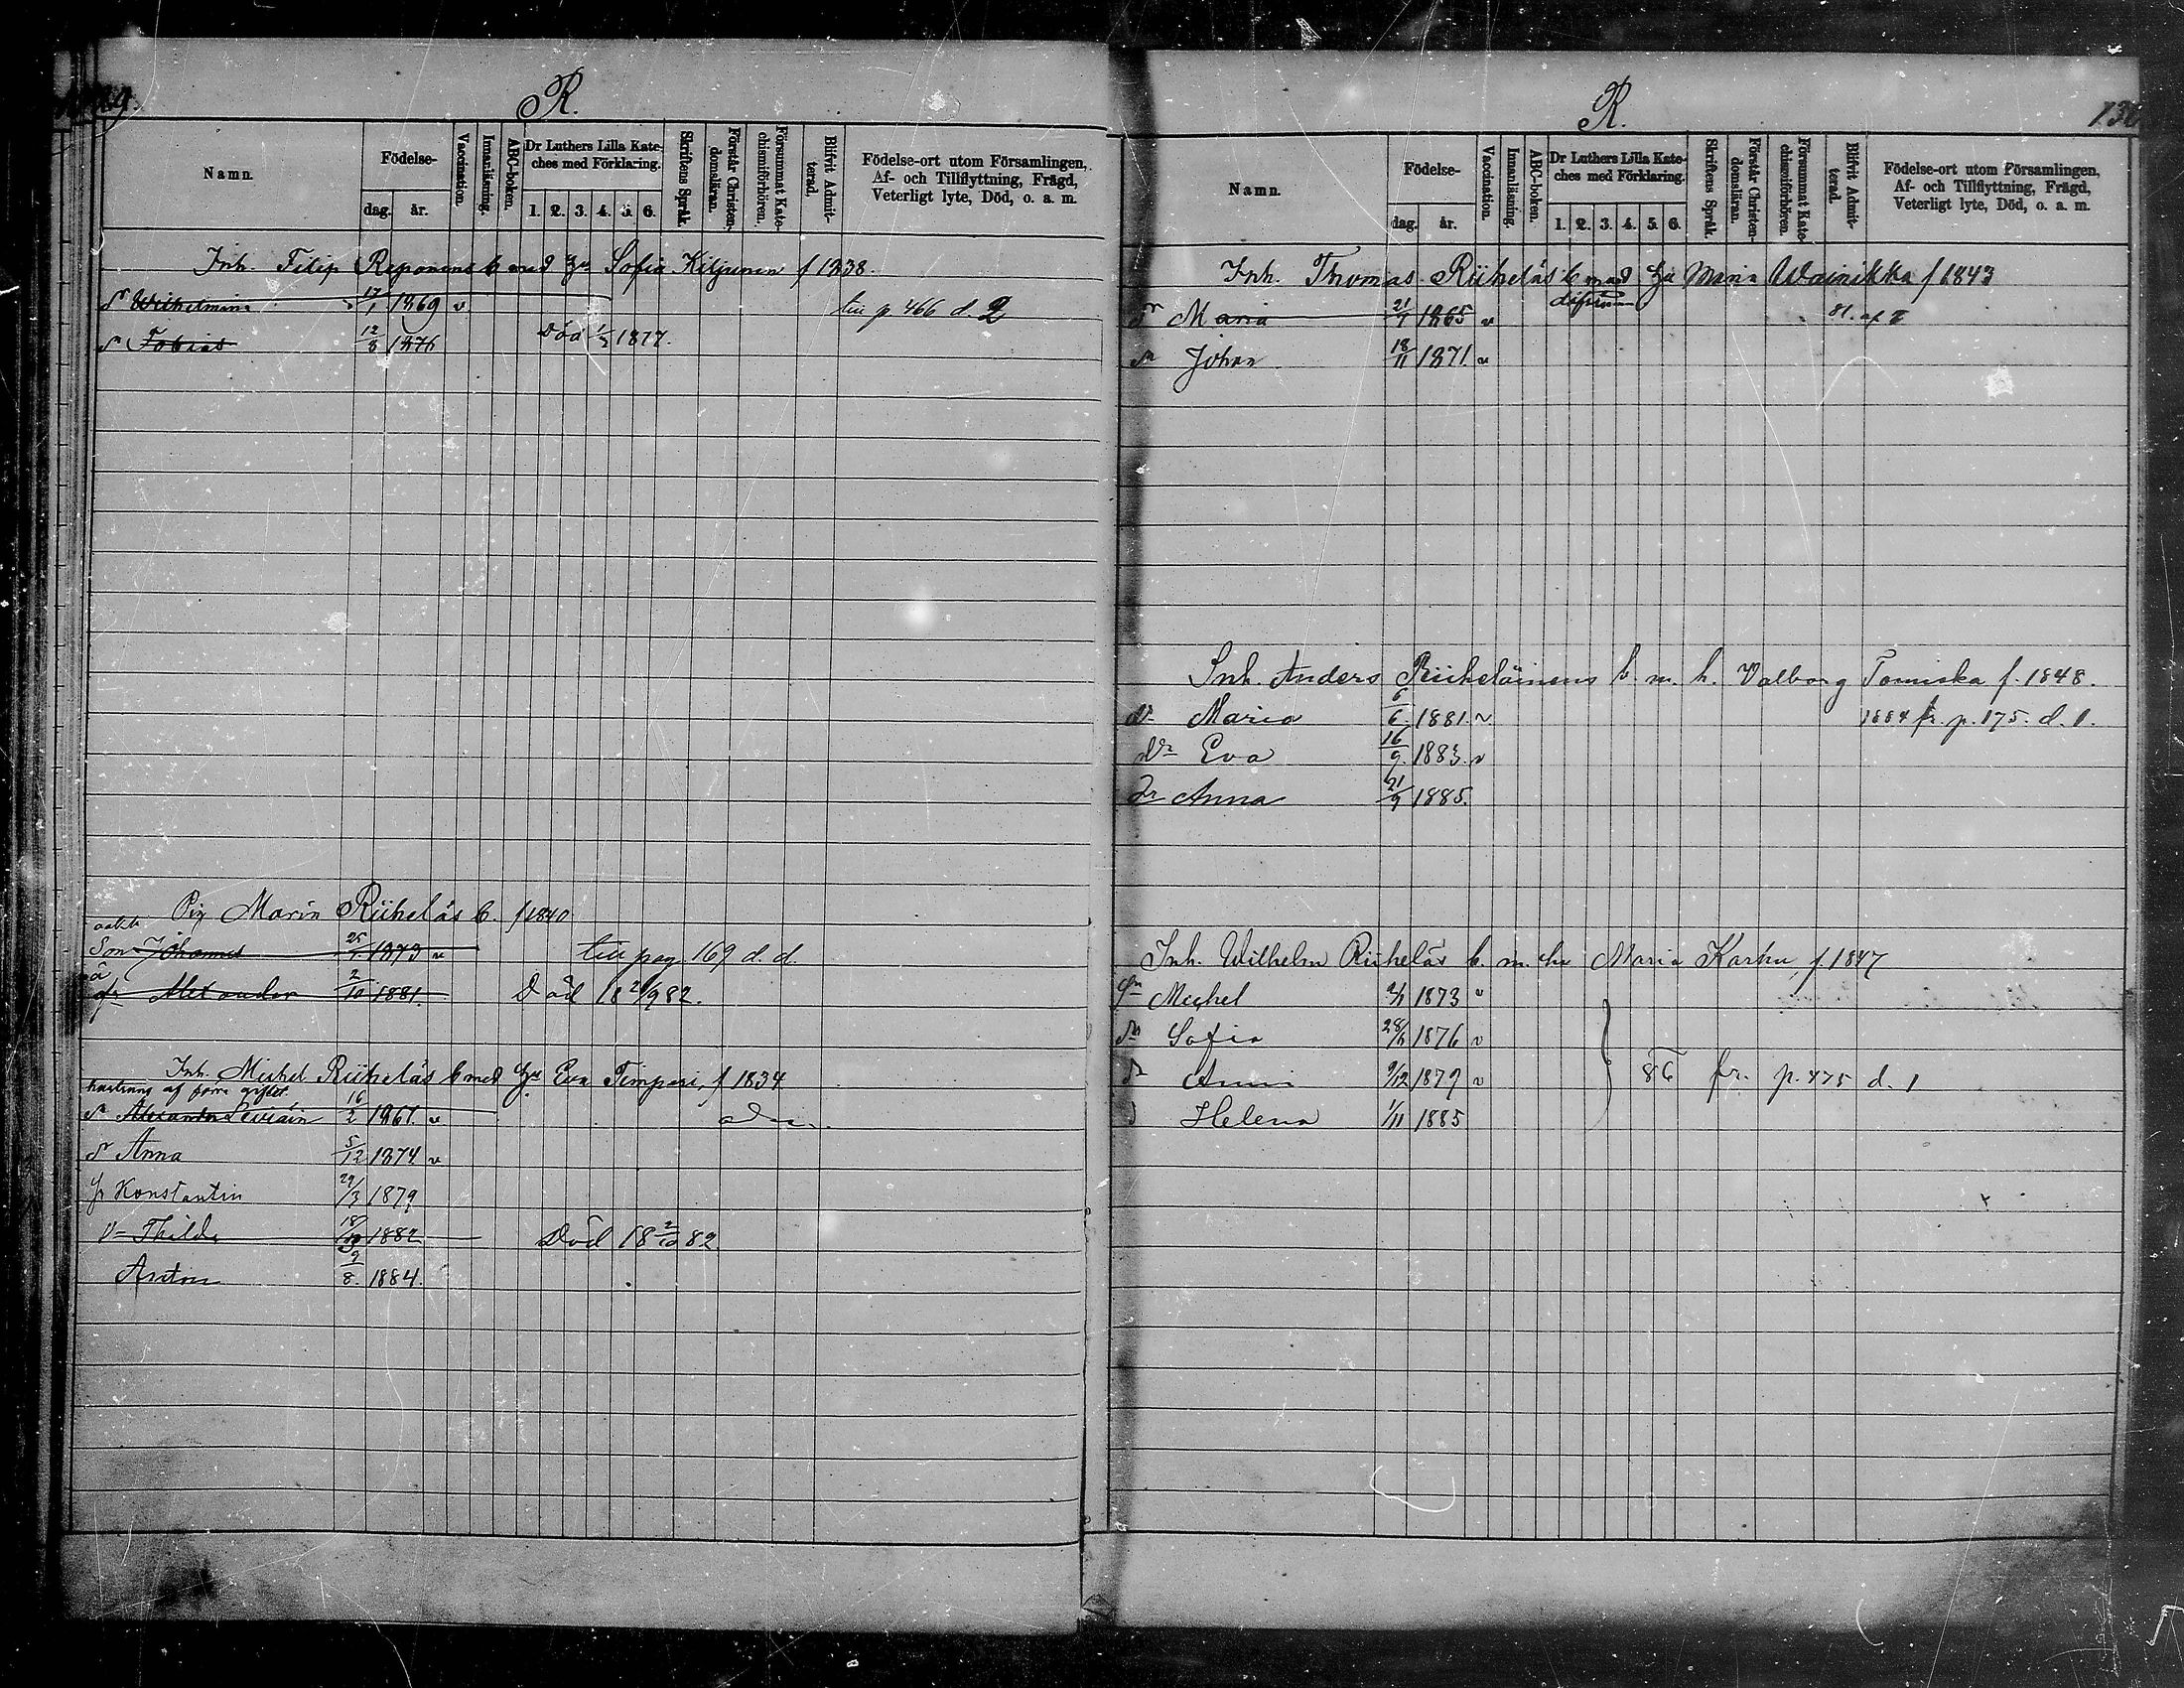 R.
Namn.
Födelse-
dag. år.
Vaccination.
Innanläsning.
ABC-boken.
Dr Luthers Lilla Kate-
ches med Förklaring.
1. 2. 3. 4. 5. 6.
Skriftens Språk.
Förstår Christen-
domsläran.
Försummat Kate-
chismiförhören.
Blifvit Admit-
terad.
Födelse-ort utom Församlingen,
Af- och Tillflyttning, Frägd,
Veterligt lyte, Död, o. a. m.
Inh. Filip Reponens b med Sofia Kiljunen f 1838.
Wilhelmina 17/1 1869 v p 466 d. 2
Tobias 12/8 1876 Död 1877.
Pig Maria Riiheläs b. f 1840
Son Johannes 25 1873 v pag 169 d. d.
Alexander 2/10 1881. Död 18 2/9 82.
Inh. Michel Riiheläs b med Eva Timperi, f 1834
hustruns af förra giftet
Alexandra Leviäin 16/2 1861. v
Anna 5/12 1874 v
Konstantin 29/3 1879
Thilda 18 1882 Död 18 2/10 82.
Anton 9/8. 1884.
R.
Namn.
Födelse-
dag. år.
Vaccination.
Innanläsning.
ABC-boken.
Dr Luthers Lilla Kate-
ches med Förklaring.
1. 2. 3. 4. 5. 6.
Skriftens Språk.
Förstår Christen-
domsläran.
Försummat Kate-
chismiförhören.
Blifvit Admit-
terad.
Födelse-ort utom Församlingen,
Af- och Tillflyttning, Frägd,
Veterligt lyte, Död, o. a. m.
Inh. Thomas Riiheläs b med Maria Wainikka f 1843
Maria 21 1865 v 81.
Johan 18/11 1871. v
Inh. Anders Riiheläinens b. m. h. Valborg f. 1848.
Maria 6/6. 1881. v 1884 fr. p. 175. d. 1.
Eva 16/9. 1883. v
Anna 21/9 1885.
Inh. Wilhelm Riiheläs b. m. Maria Karhu f 1847
Michel 1873 v
Sofia 28 1876 v
Anni 9/12 1879 v 86 fr. p. 475 d. 1
Helena 1/11 1885